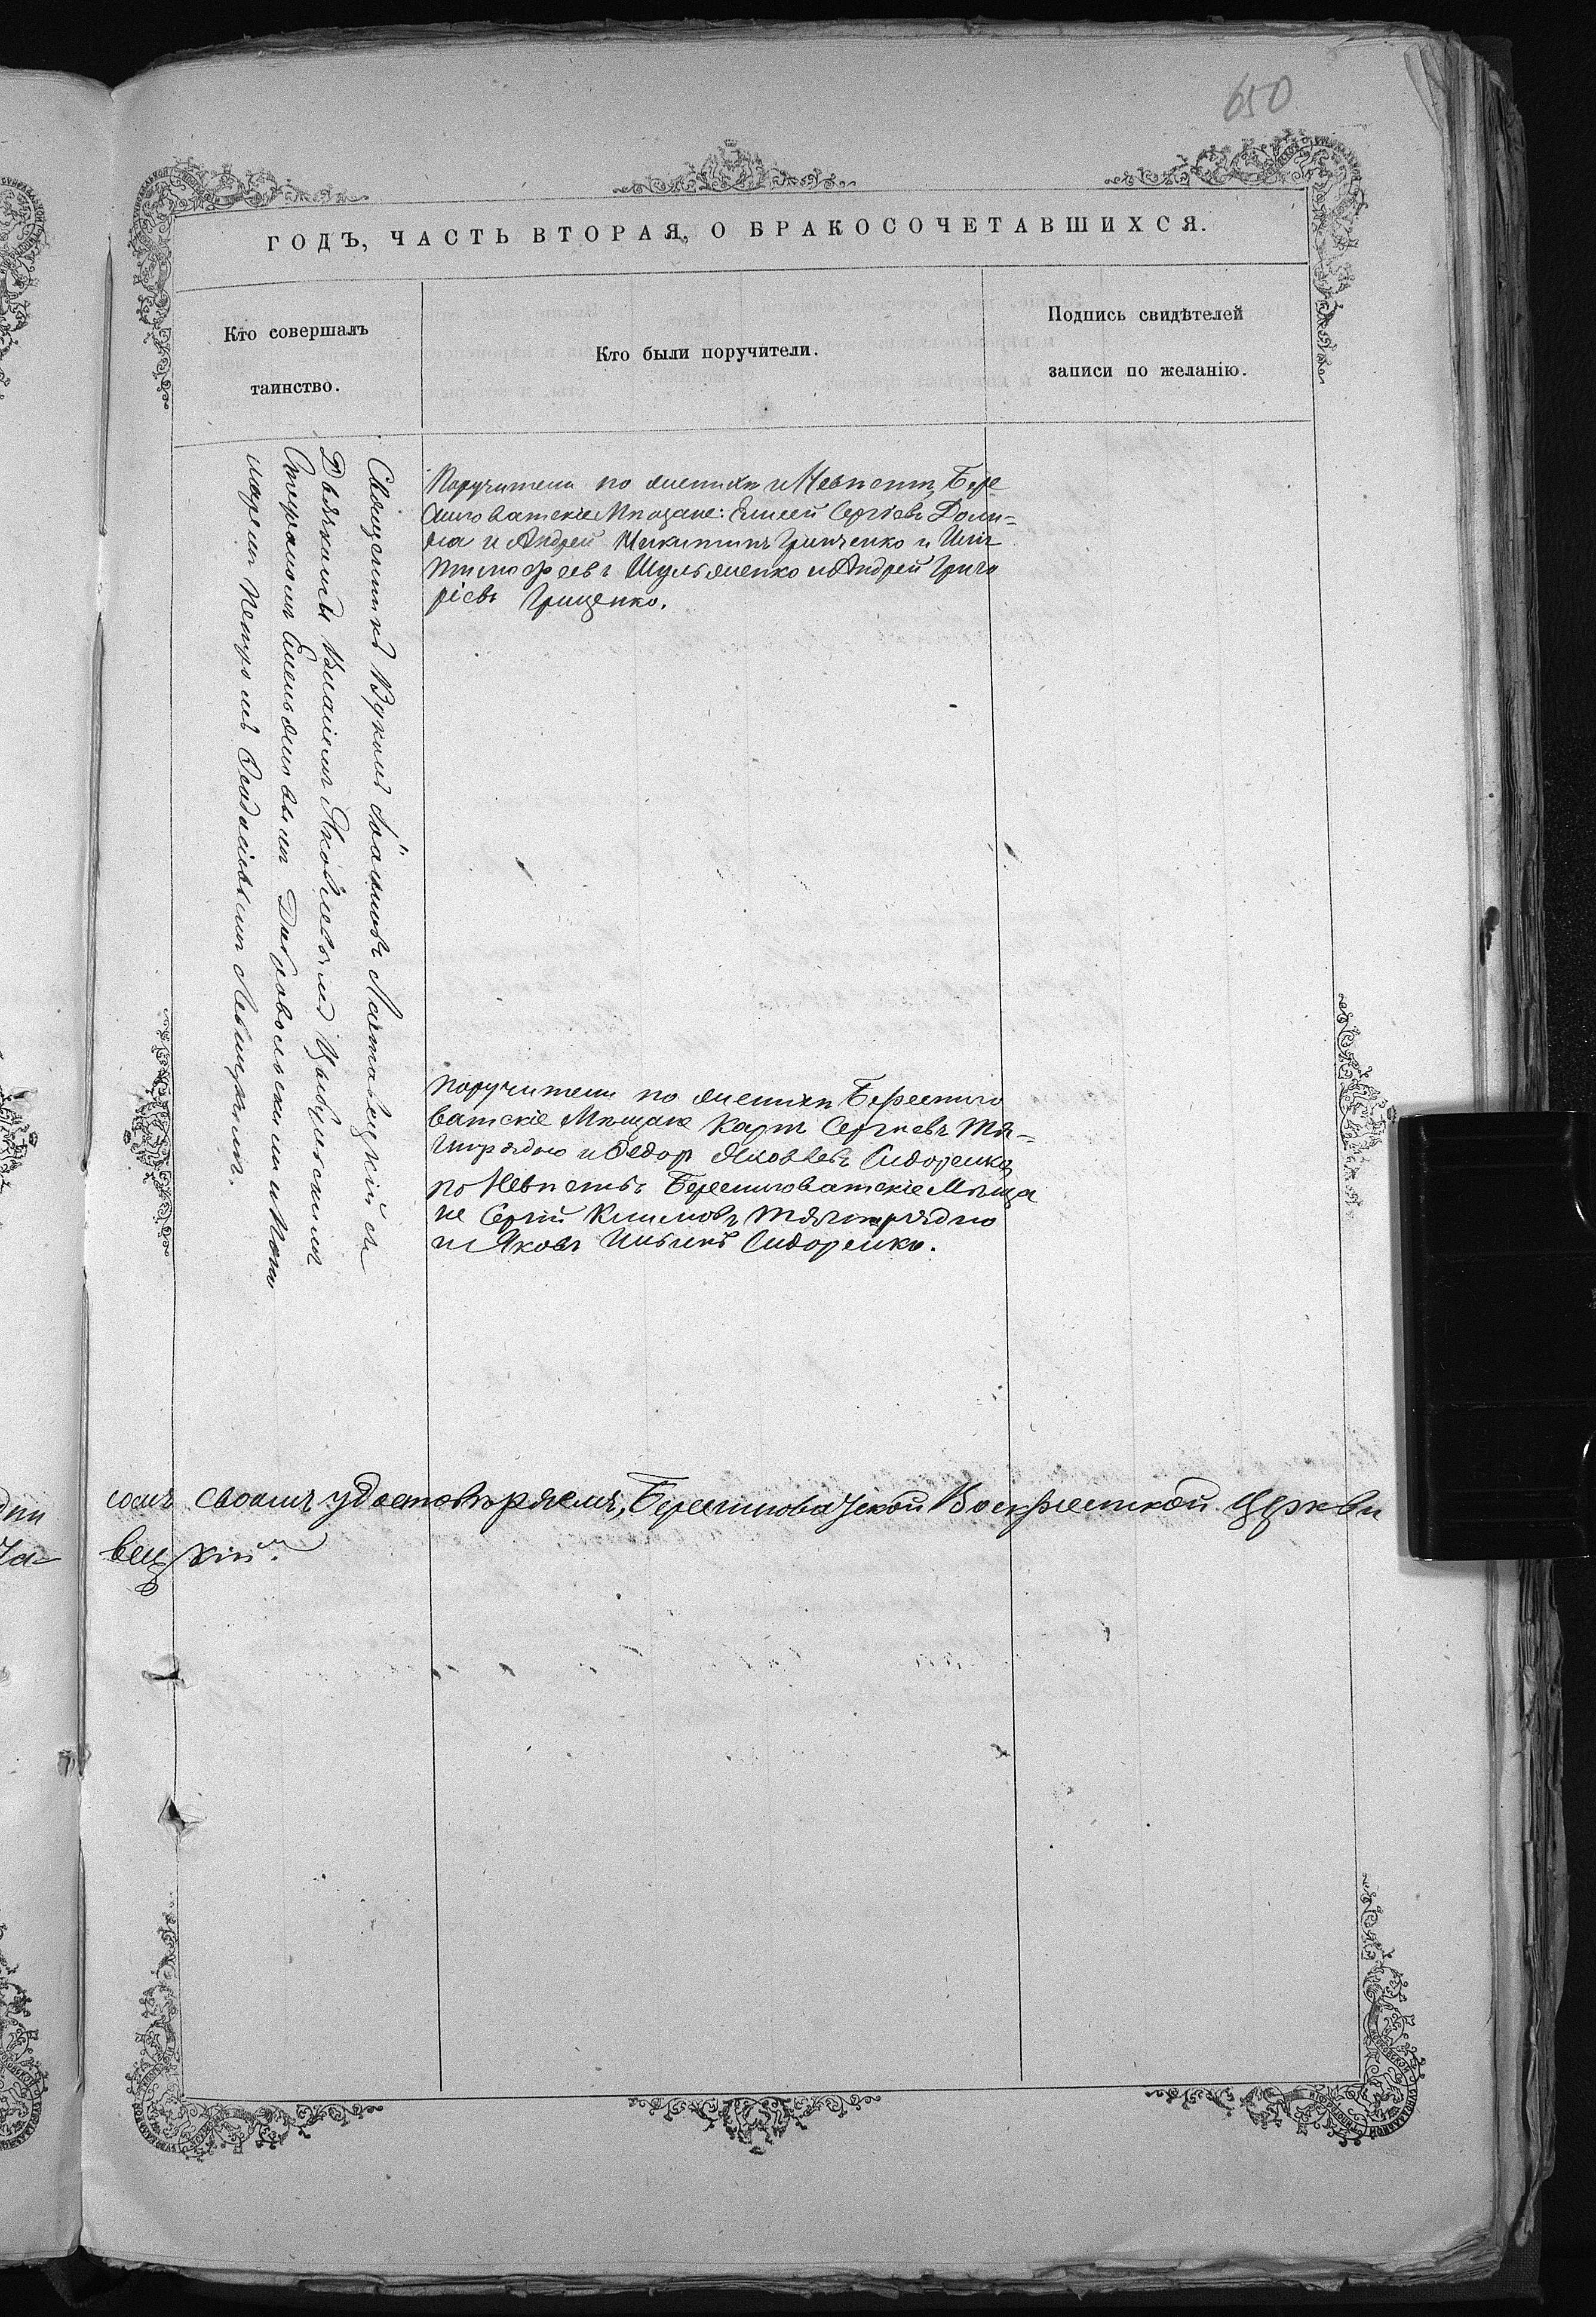 650
ГОДЪ, ЧАСТЬ ВТОРАЯ, О БРАКОСОЧЕТАВШИХСЯ.
Кто совершалъ
таинство.
Кто были поручители.
Подпись свидѣтелей
записи по желанію.
Священникъ Вуколъ Іоанновъ съ
Дьячкомъ Яковлевымъ
Стефаномъ Емельяновымъ Добровольскимъ и Поно
маремъ Петромъ Левицкимъ.
Поручители по женихѣ и Невѣстѣ, Бере
стоватскіе Мѣщане: Елисей Сергіевъ Доли-
на и Андрей Никитинъ Гринченко и
Тимофеевъ Шульженко и Андрей Григо
ріевъ Гриценко.
поручители по женихѣ Берестого
ватскіе Мѣщане Карпъ Сергѣевъ Тя-
гнирядно и Федоръ Яковлевъ Сидоренко,
по Невѣстѣ Берестоватскіе Мѣща
не Сергій Климовъ Тягнирядно
и Яковъ Ильинъ Сидоренко.
сомъ своимъ удостовѣряемъ, Берестоватской Воскресенской Церкви
вецкій.